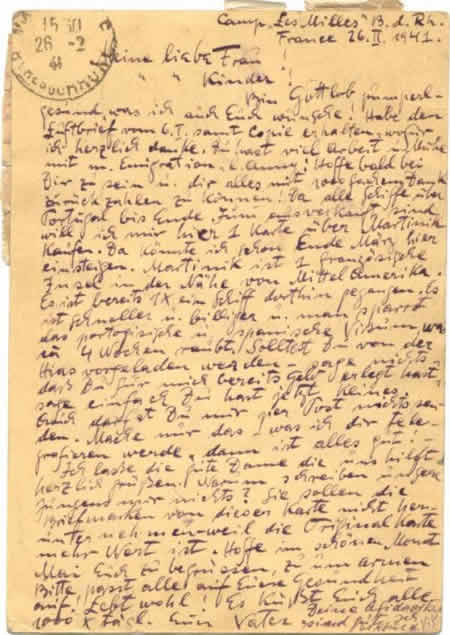 15 30
26 -2
41
Camp „Les Milles" B. d. Rh.
France 26. II. 1941.
Meine liebe Frau
" " Kinder!
Bin Gottlob pumperl-
gesund, was ich auch Euch wünsche! Habe den
Luftbrief vom 6. I. samt Copie erhalten, wofür
ich herzlich danke. Du hast viel Arbeit u. Mühe
mit m. Emigration, Hoffe bald bei
Dir zu sein u. dir alles mit Dank
zurück zahlen zu können! Da alle Schiffe über
Portugal bis Ende Juni ausverkauft sind
will ich mir hier 1 Karte über Martinik
kaufen. Da könnte ich schon Ende März hier
einsteigen. Martinik ist 1 französische
Insel in der Nähe von Mittel Amerika.
Es ist bereits 1 X ein Schiff dorthin gegangen. Es
ist schneller u. billiger u. man sparrt
das portogisische u. spanische Visum, was
4 Wochen raubt. Solltest Du von der
Hias vorgeladen werden – sage nichts
daß Du für mich bereits Geld erlegt hast,
sage einfach Du hast jetzt keines.
Auch darfst Du mir per Post nichts sen-
den. Mache nur das – was ich dir tele-
grafieren werde, dann ist alles gut! –
Ich lasse die gute Dame die uns hilft
herzlich grüßen. Warum schreiben unsere
Jungens mir nichts? Sie sollen die
Briefmarken von dieser Karte nicht her-
unter nehmen – weil die Original Karte
mehr Wert ist. Hoffe im schönen Monat
Mai Euch zu begrüssen, zu um armen
Bitte, passt alle auf Euere Gesundheit
auf. Lebt wohl! Es küßt Euch alle
1000 X tägl. Euer Vater